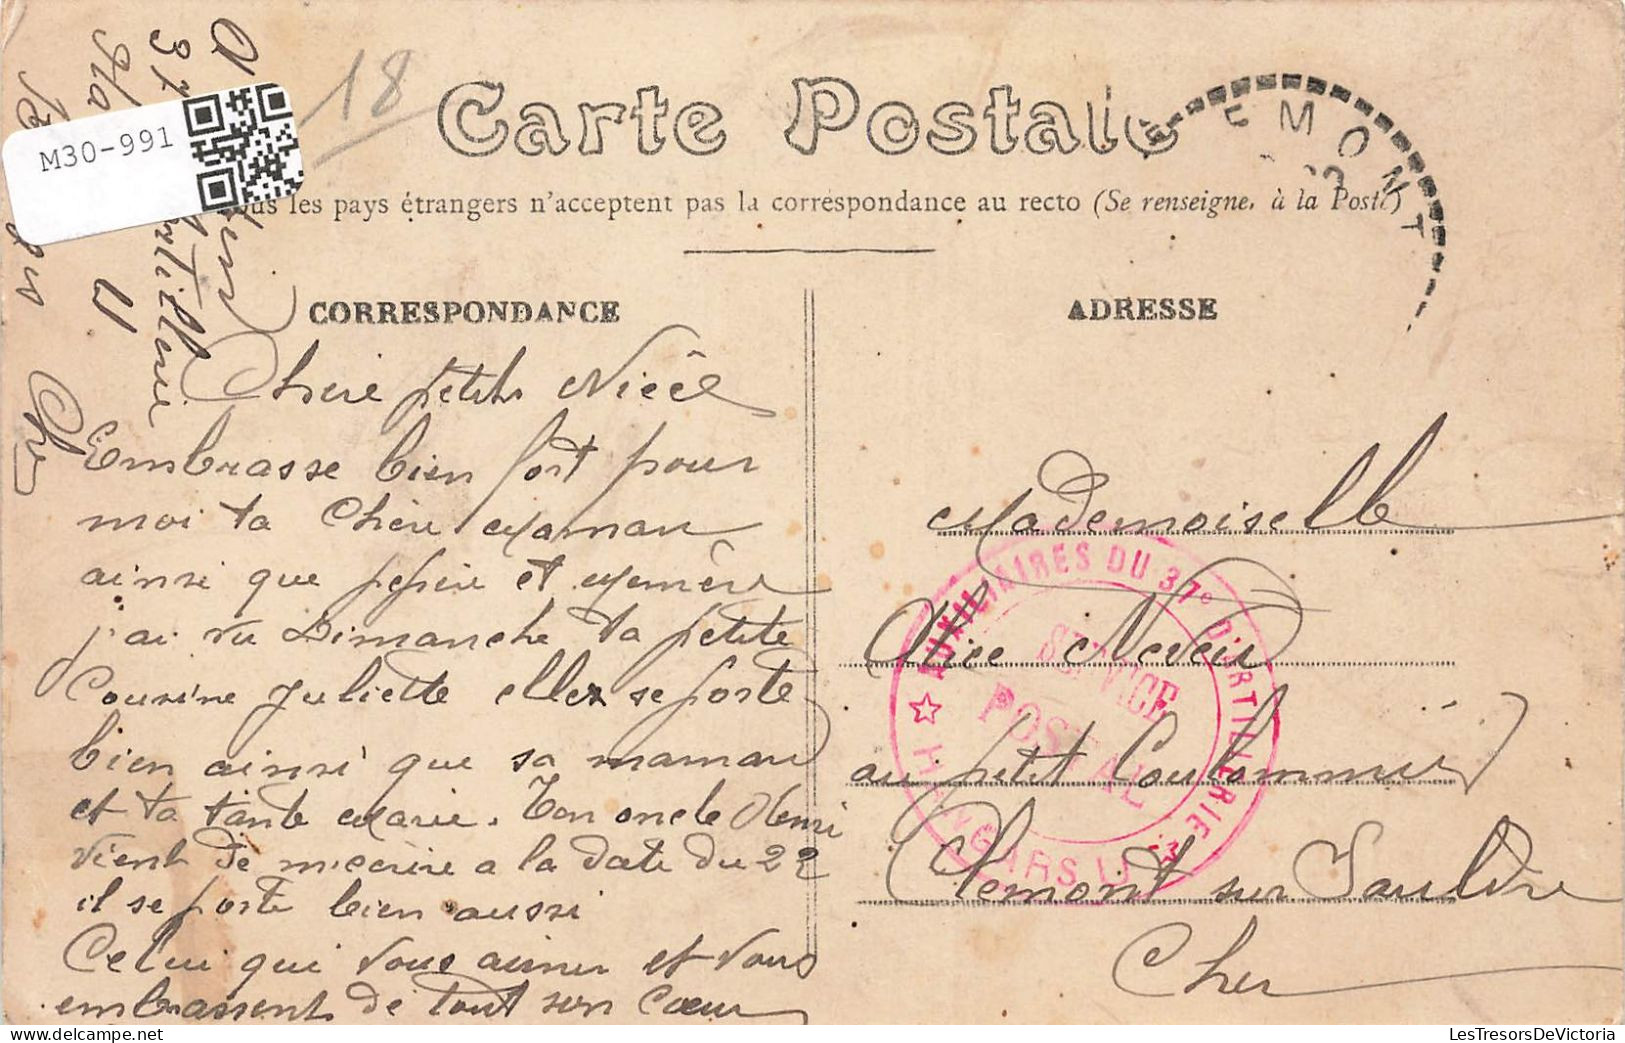 18
M30-991
Carte Postale
les pays étrangers n'acceptent pas la correspondance au recto (Se renseigner à la Poste)
EMONT
CORRESPONDANCE
ADRESSE
Chère petite Nièce
Embrasse bien fort pour
moi ta Chère Maman
ainsi que pépère et Mémère
j'ai vu Dimanche ta petite
Cousine Juliette elle se porte
bien ainsi que sa maman
et ta tante Marie. Ton oncle Henri
vient de m'ecrire a la date du 22
il se porte bien aussi
Celui qui vous aimes et vous
embrassent de tout son Cœur
37
Artillerie
Cher
Mademoiselle
Alice
au petit Coulommié
Clemont sur Sauldre
Cher
AUXILIAIRES DU 37e D'ARTILLERIE
HANGARS U
SERVICE
POSTAL
LesTresorsDeVictoria